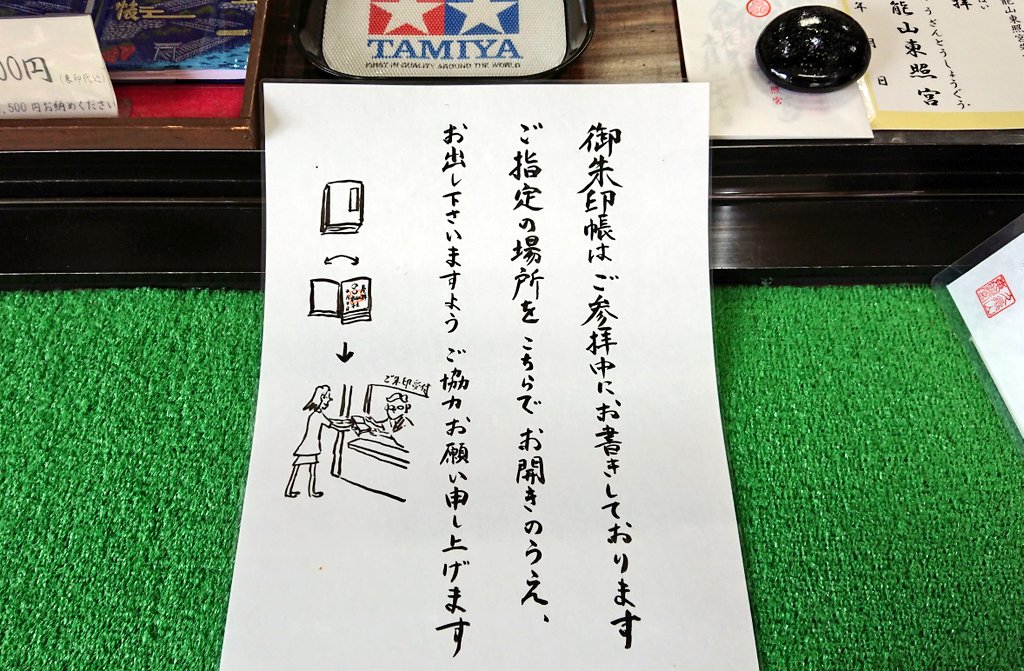 御朱印帳はご参拝中にお書きしております
ご指定の場所をこちらでお開きのうえ、
お出し下さいますようご協力お願い申し上げます
ご朱印受付
TAMIYA
FIRST IN QUALITY AROUND THE WORLD
00円
(朱印代込)
,500円お納めください
帳
能山東照宮
うざんとうしょうぐう
年
月
日
拝
照宮